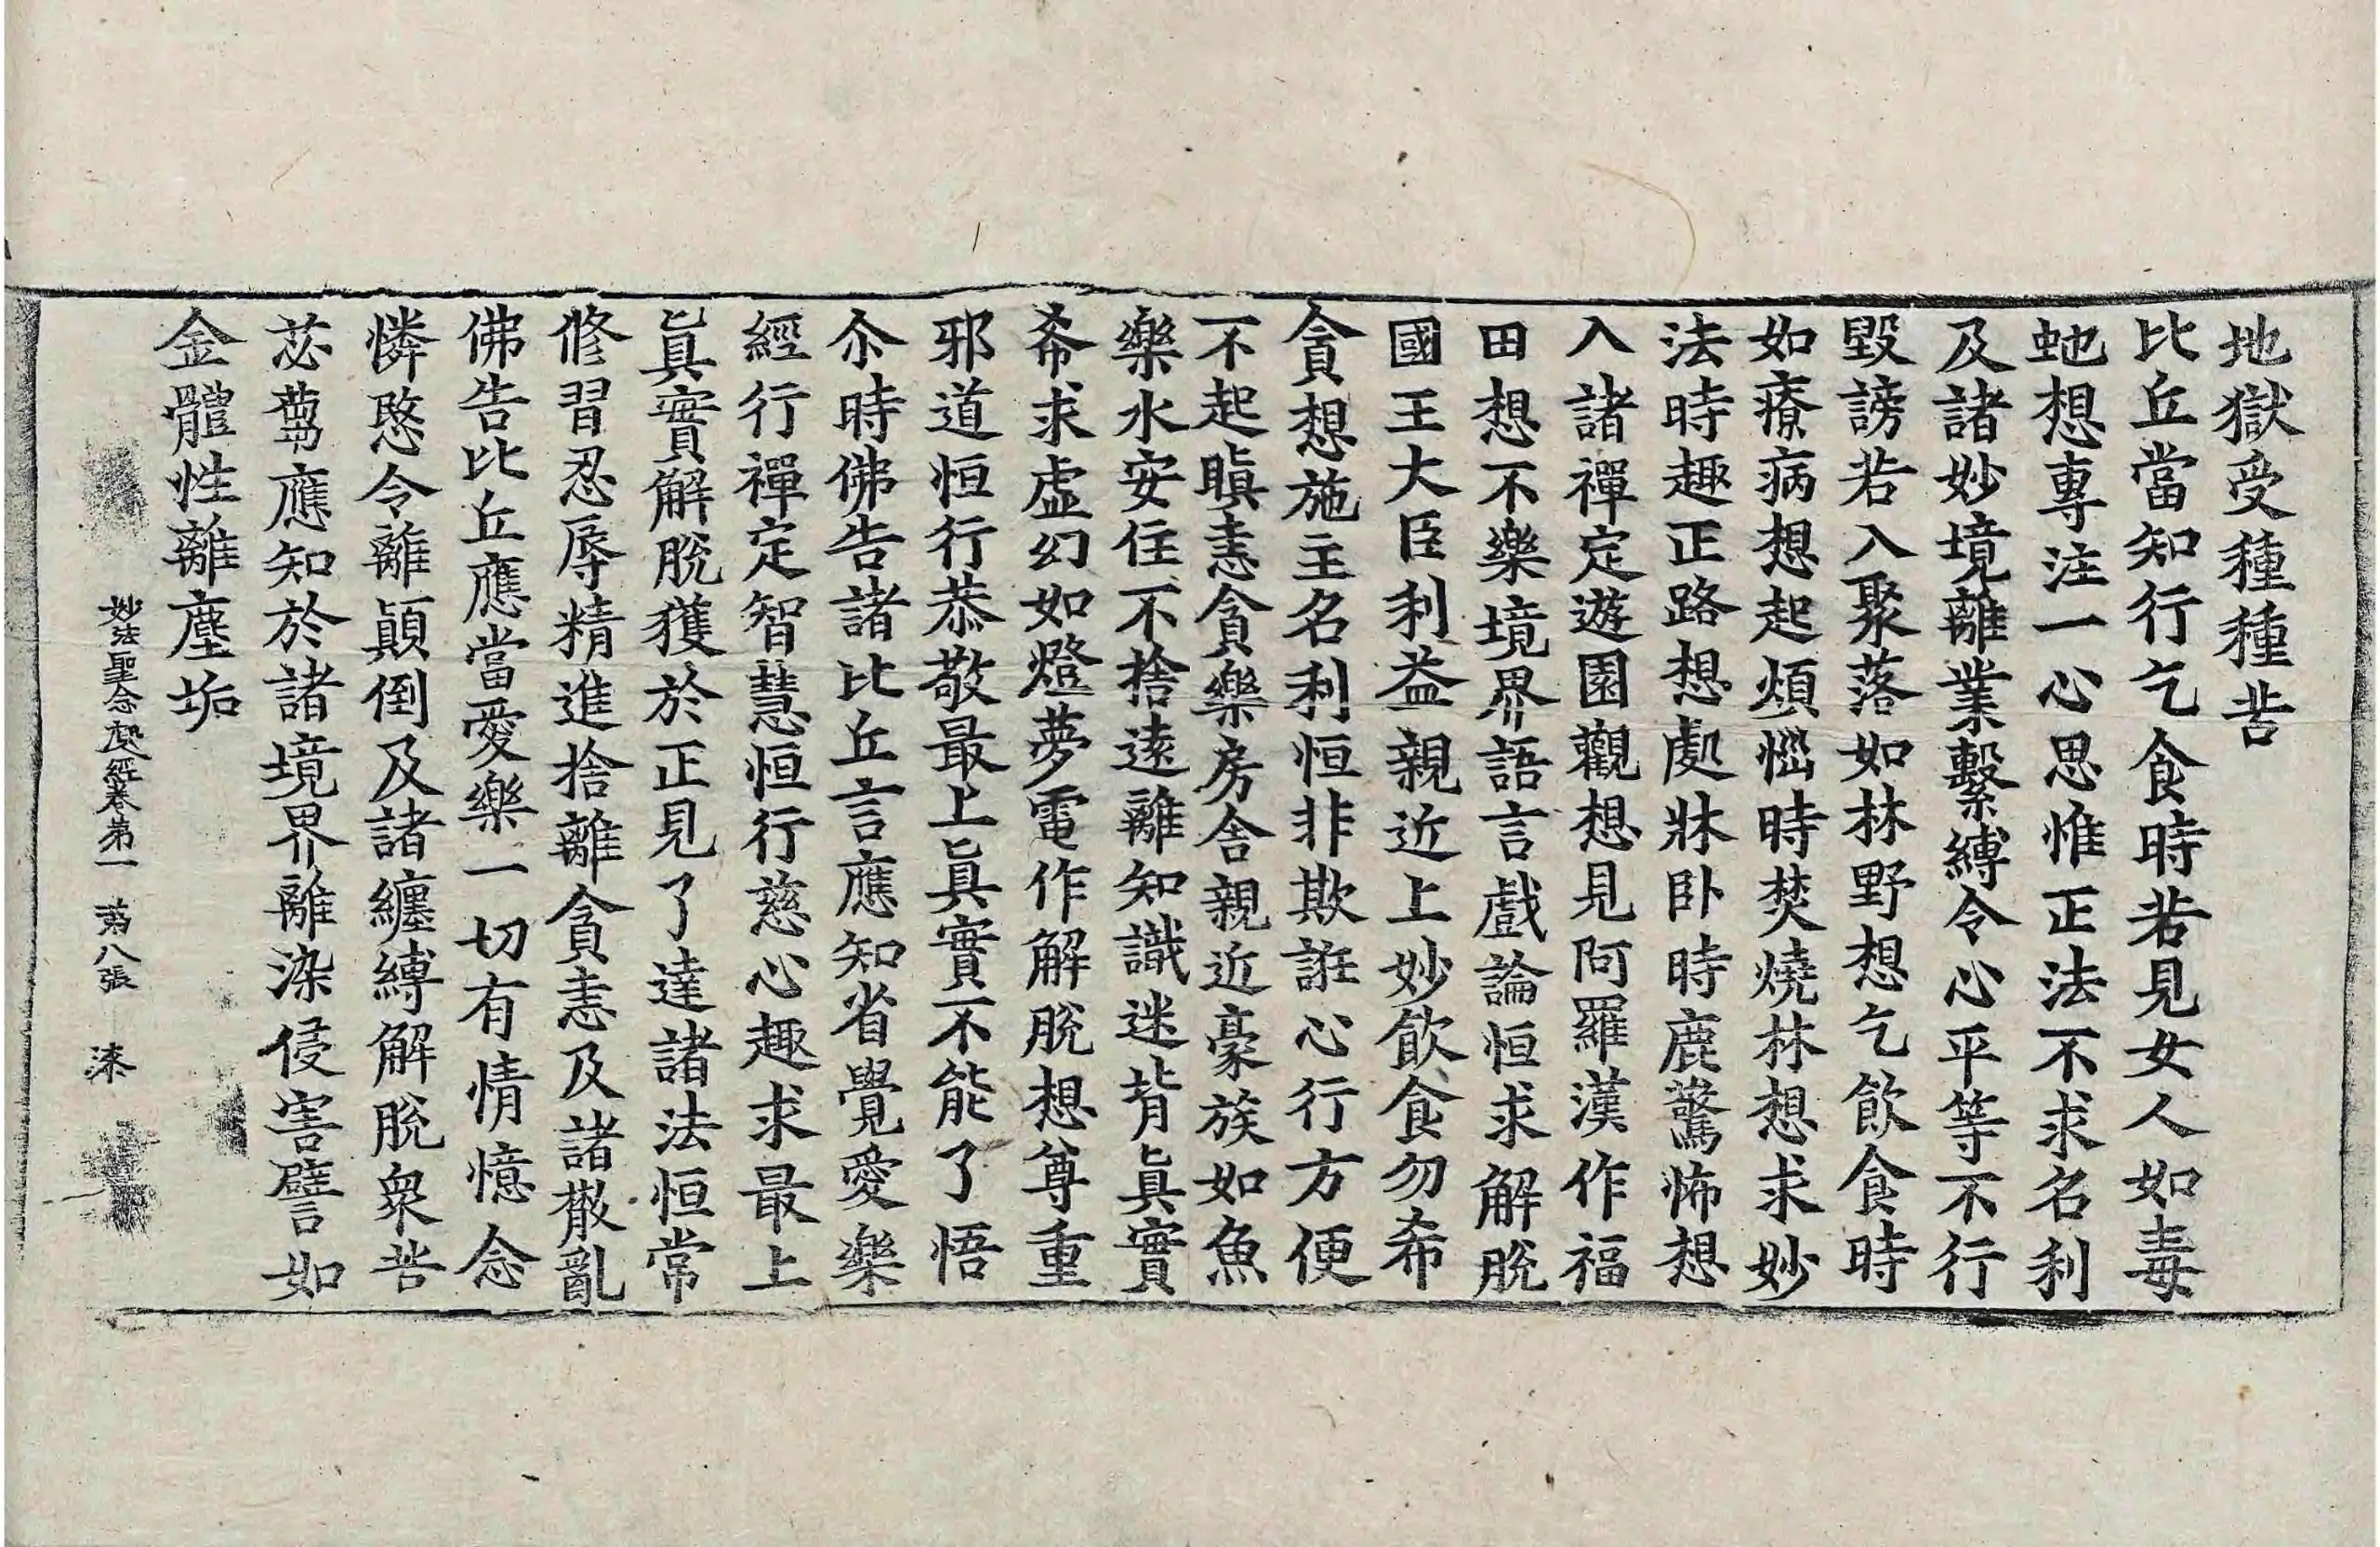 地獄受種種苦
比丘當知行乞食時若見女人如毒
虵想專注一心思惟正法不求名利
及諸妙境離業繫縛令心平等不行
毀謗若入聚落如林野想乞飲食時
如療病想起煩惱時焚燒林想求妙
法時趣正路想處牀卧時鹿驚怖想
入諸禪定遊園觀想見阿羅漢作福
田想不樂境界語言戲論恒求解脫
國王大臣利益親近上妙飲食勿希
貪想施主名利恒非欺誑心行方便
不起瞋恚貪樂房舍親近豪族如魚
樂水安住不捨遠離知識迷背眞實
希求虛幻如燈夢電作解脫想尊重
邪道恒行恭敬最上眞實不能了悟
尒時佛告諸比丘言應知省覺愛樂
經行禪定智慧恒行慈心趣求最上
眞實解脫獲於正見了達諸法恒常
修習忍辱精進捨離貪恚及諸散亂
佛告比丘應當愛樂一切有情憶念
憐愍令離顚倒及諸纏縛解脫衆苦
苾蒭應知於諸境界離染侵害譬如
金體性離塵垢
妙法聖念處經卷第一 第八張 漆